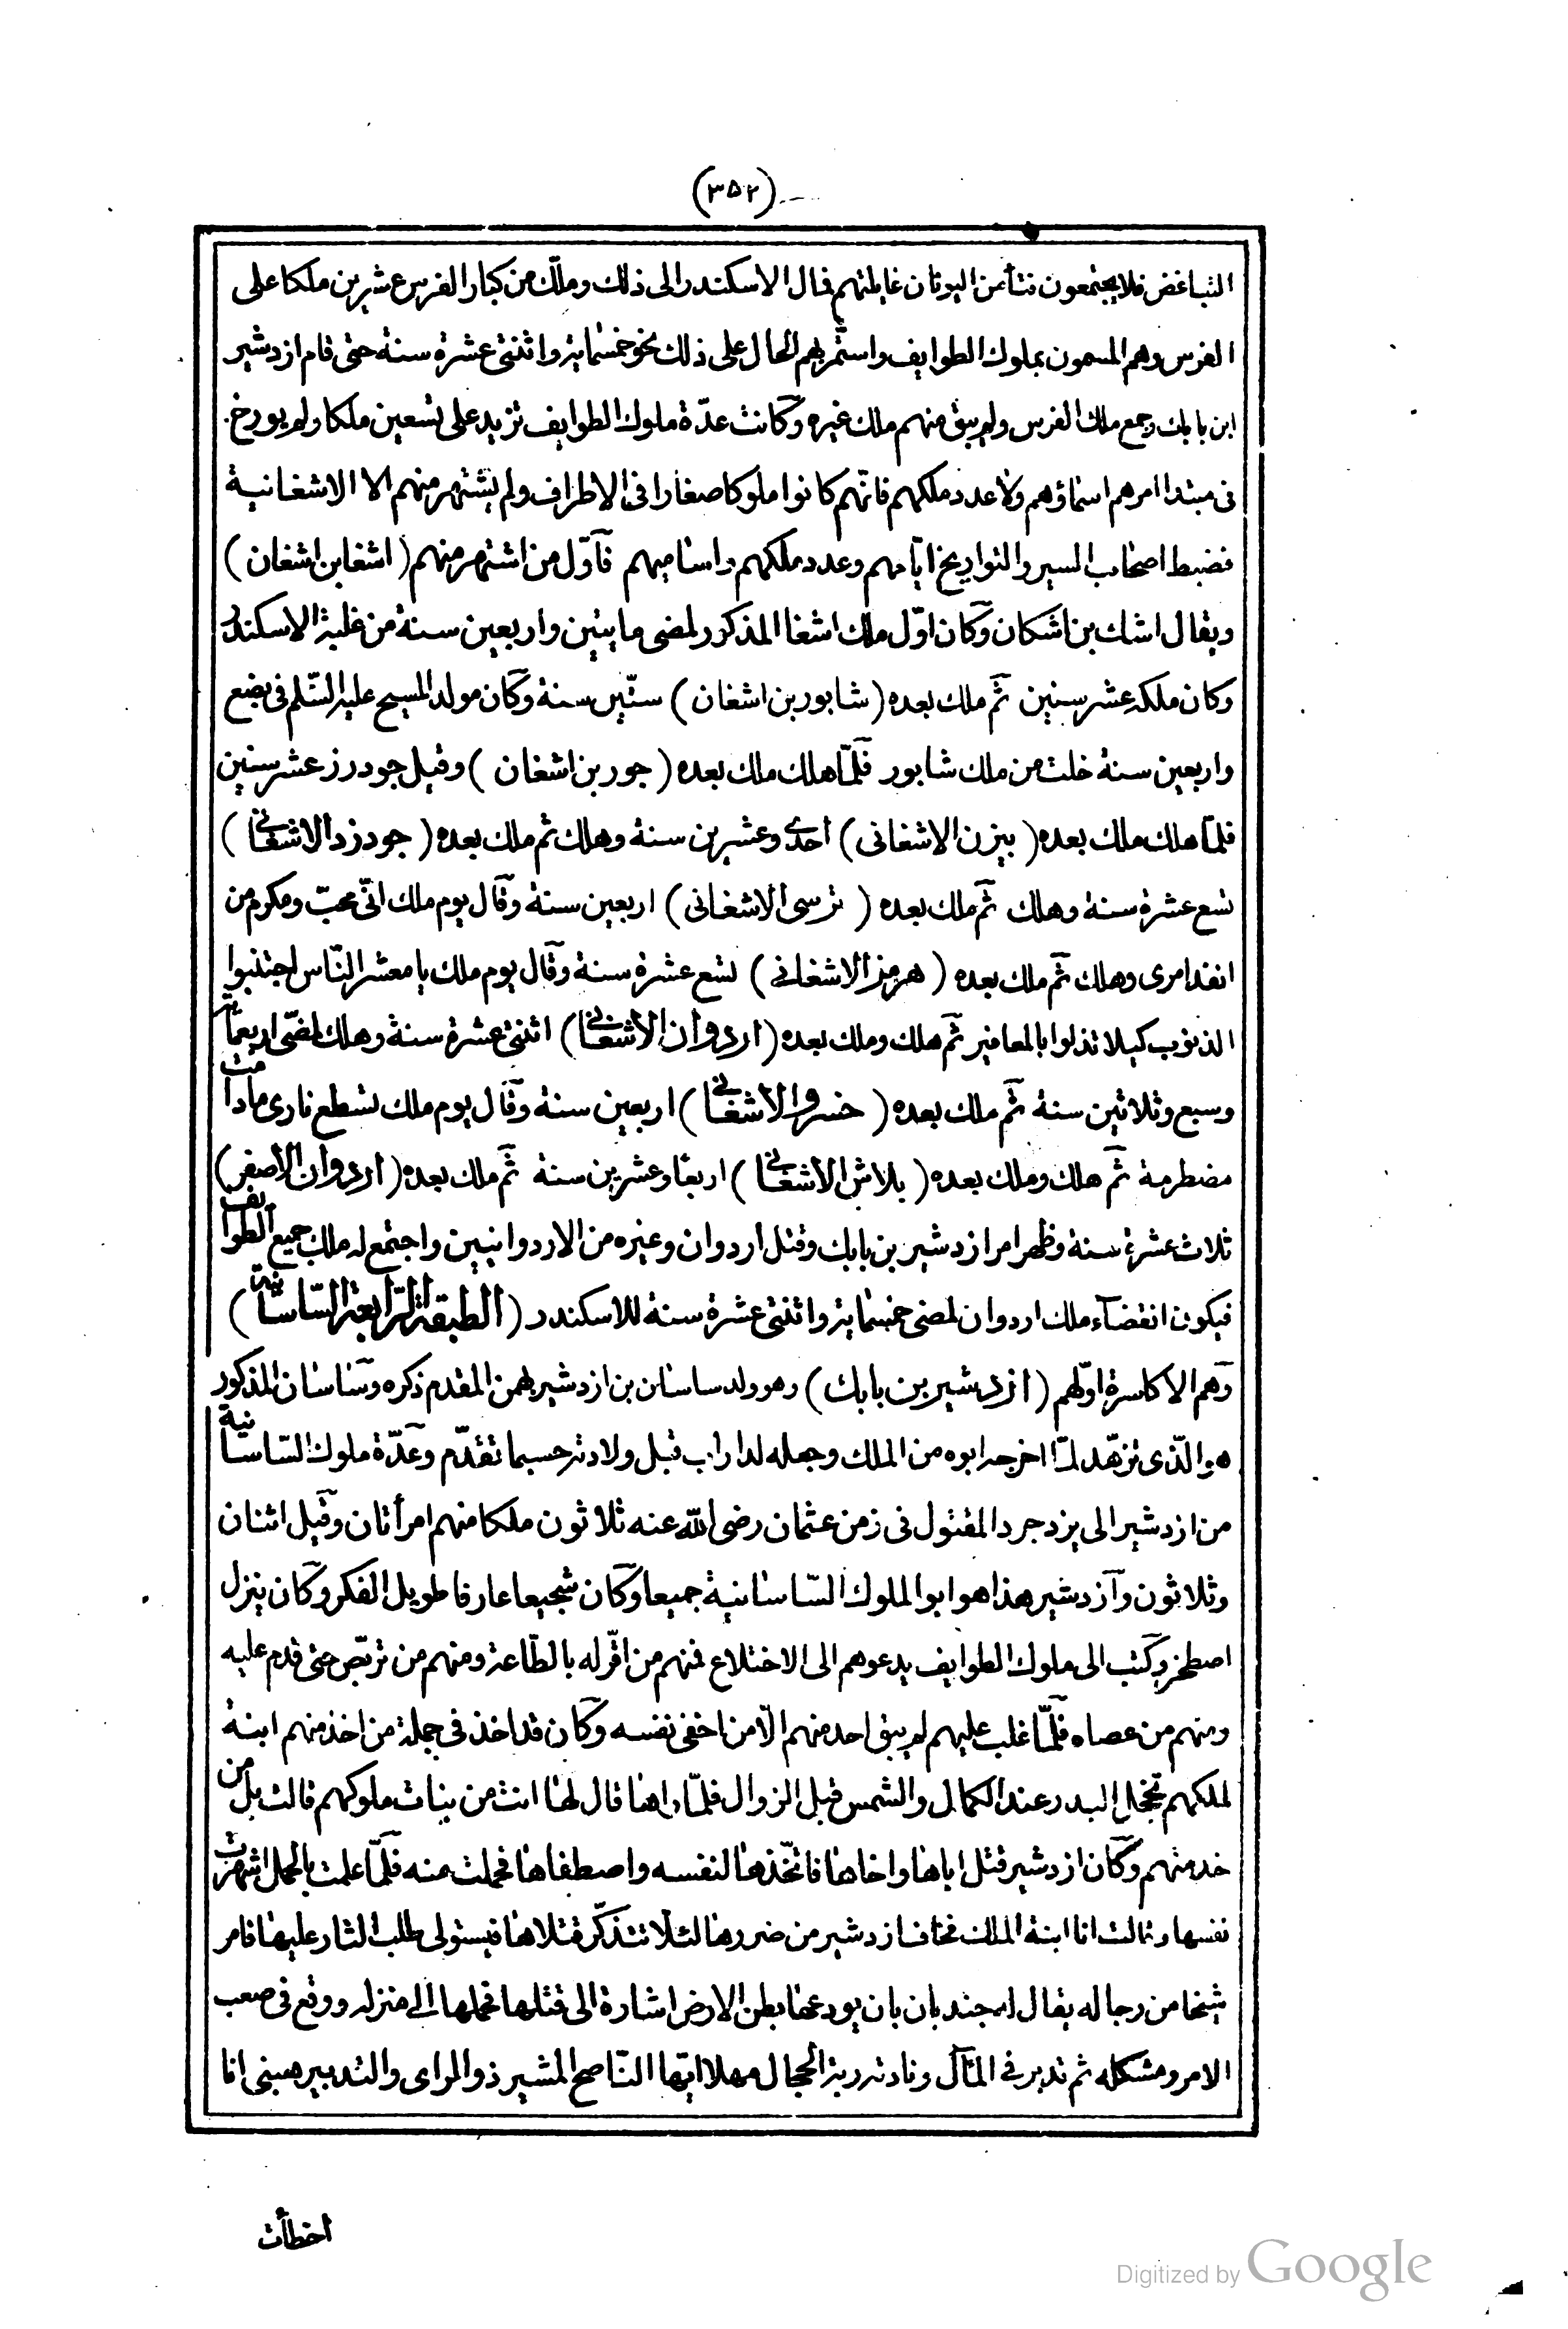 (٣٥٢)
التباغض فلا يجتمعون فتأمن اليونان غايلتهم فمال الاسكندر الى ذلك وملّك من كبار الفرس عشرين ملكا على
الفرس وهم المسمون بملوك الطوايف واستمّر بهم الحال على ذلك نحو خمسماية واثنتى عشرة سنة حتى قام ازدشير
ابن بابك وجمع ملك الفرس ولم يبق منهم ملك غيره وكانت عدّة ملوك الطوايف تزيد على تسعين ملكا ولم يورخ
فى مبتدا امرهم اسماؤهم ولا عدد ملكهم فانّهم كانوا ملوكا صغارا فى الاطراف ولم يشتهر منهم الا الاشغانية
فضبط اصحاب السير والتواريخ ايّامهم وعدد ملكهم واساميهم فاوّل من اشتهر منهم (اشغا بن اشغان)
ويقال اشك بن اشكان وكان اوّل ملك اشغا المذكور لمضى مايتين واربعين سنة من غلبة الاسكندر
وكان ملكه عشر سنين ثم ملك بعده (شابور بن اشغان) ستّين سنة وكان مولد المسيح عليه السّلم فى بضع
واربعين سنة خلت من ملك شابور فلمّا هلك ملك بعده (جور بن اشغان) وقيل جودرز عشر سنين
فلمّا هلك ملك بعده (بيزن الاشغانى) احدى وعشرين سنة وهلك ثم ملك بعده (جودرزد الاشغانى)
تسع عشرة سنة وهلك ثم ملك بعده (نرسى الاشغانى) اربعين سنة وقال يوم ملك انّى محبّ ومكرم من
انفذ امرى وهلك ثم ملك بعده (هرمز الاشغانى) تسع عشرة سنة وقال يوم ملك يا معشر النّاس اجتنبوا
الذنوب كيلا تذلوا بالمعاذير ثم هلك وملك بعده (اردوان الاشغانى) اثنتى عشرة سنة وهلك لمضّى اربعماية
وسبع وثلاثين سنة ثم ملك بعده (خسرو الاشغانى) اربعين سنة وقال يوم ملك تسطع نارى مادامت
مضطرمة ثم هلك وملك بعده (بلاش الاشغانى) اربعا وعشرين سنة ثم ملك بعده (اردوان الاصغر)
ثلاث عشرة سنة وظهر امر ازدشير بن بابك وقتل اردوان وغيره من الاردوانيين واجتمع له ملك جميع الطوايف
فيكون انقضآء ملك اردوان لمضى خمسماية واثنتى عشرة سنة للاسكندر (الطبقة الرّابعة السّاسانية)
وهم الاكاسرة اوّلهم (ازدشير بن بابك) وهو ولد ساسان بن ازدشير بهمن المقدم ذكره وساسان المذكور
هو الّذى تزهّد لمّا اخرجه ابوه من الملك وجعله لداراب قبل ولادته حسبما تقدّم وعدّة ملوك السّاسانية
من ازدشير الى يزدجرد المقتول فى زمن عثمان رضى الله عنه ثلاثون ملكا منهم امرأتان وقيل اثنان
وثلاثون وازدشير هذا هو ابو الملوك السّاسانية جميعا وكان شجيعا عارفا طويل الفكر وكان ينزل
اصطخر وكتب الى ملوك الطوايف يدعوهم الى الاختلاع فمنهم من اقرّ له بالطّاعة ومنهم من تربّص حتى قدم عليه
ومنهم من عصاه فلمّا غلب عليهم لم يبق احد منهم الّا من اخفى نفسه وكان قد اخذ فى جملة من اخذ منهم ابنة
لملكهم تخجل البدر عند الكمال والشمس قبل الزوال فلمّا راها قال لها انت من بنات ملوكهم قالت بل من
خدمتهم وكان ازدشير قتل اباها واخاها فاتّخذها لنفسه واصطفاها فحملت منه فلمّا علمت بالحمل اشهرت
نفسها وقالت انا ابنة الملك فخاف ازدشير من ضررها لئلّا تتذكّر قتلاها فيستولى طلب الثار عليها فامر
شيخا من رجاله يقال له جند بان بان يودعها بطن الارض اشارة الى قتلها فحملها الى منزله ووقع فى صعب
الامر ومشكله ثم تدبر فى المآل ونادته ربة الحجال مهلا ايّها النّاصح المشير ذو الراى والتدبير هبنى انا
اخطأت
Digitized by Google